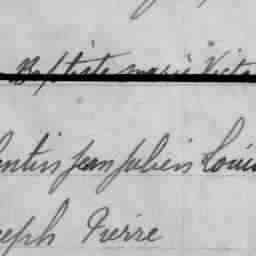 Baptiste Marie Victo
lentin Jean Julien Loui
seph Pierre